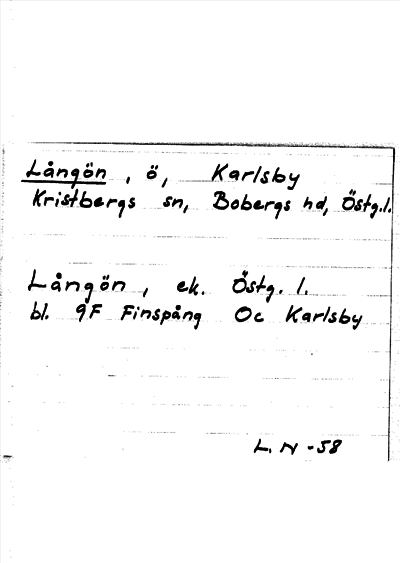 Långön, ö, Karlsby
Kristbergs sn, Bobergs hd, Östg.l.
Långön, ek. Östg. l.
bl. 9F Finspång Oc Karlsby
L. N -58